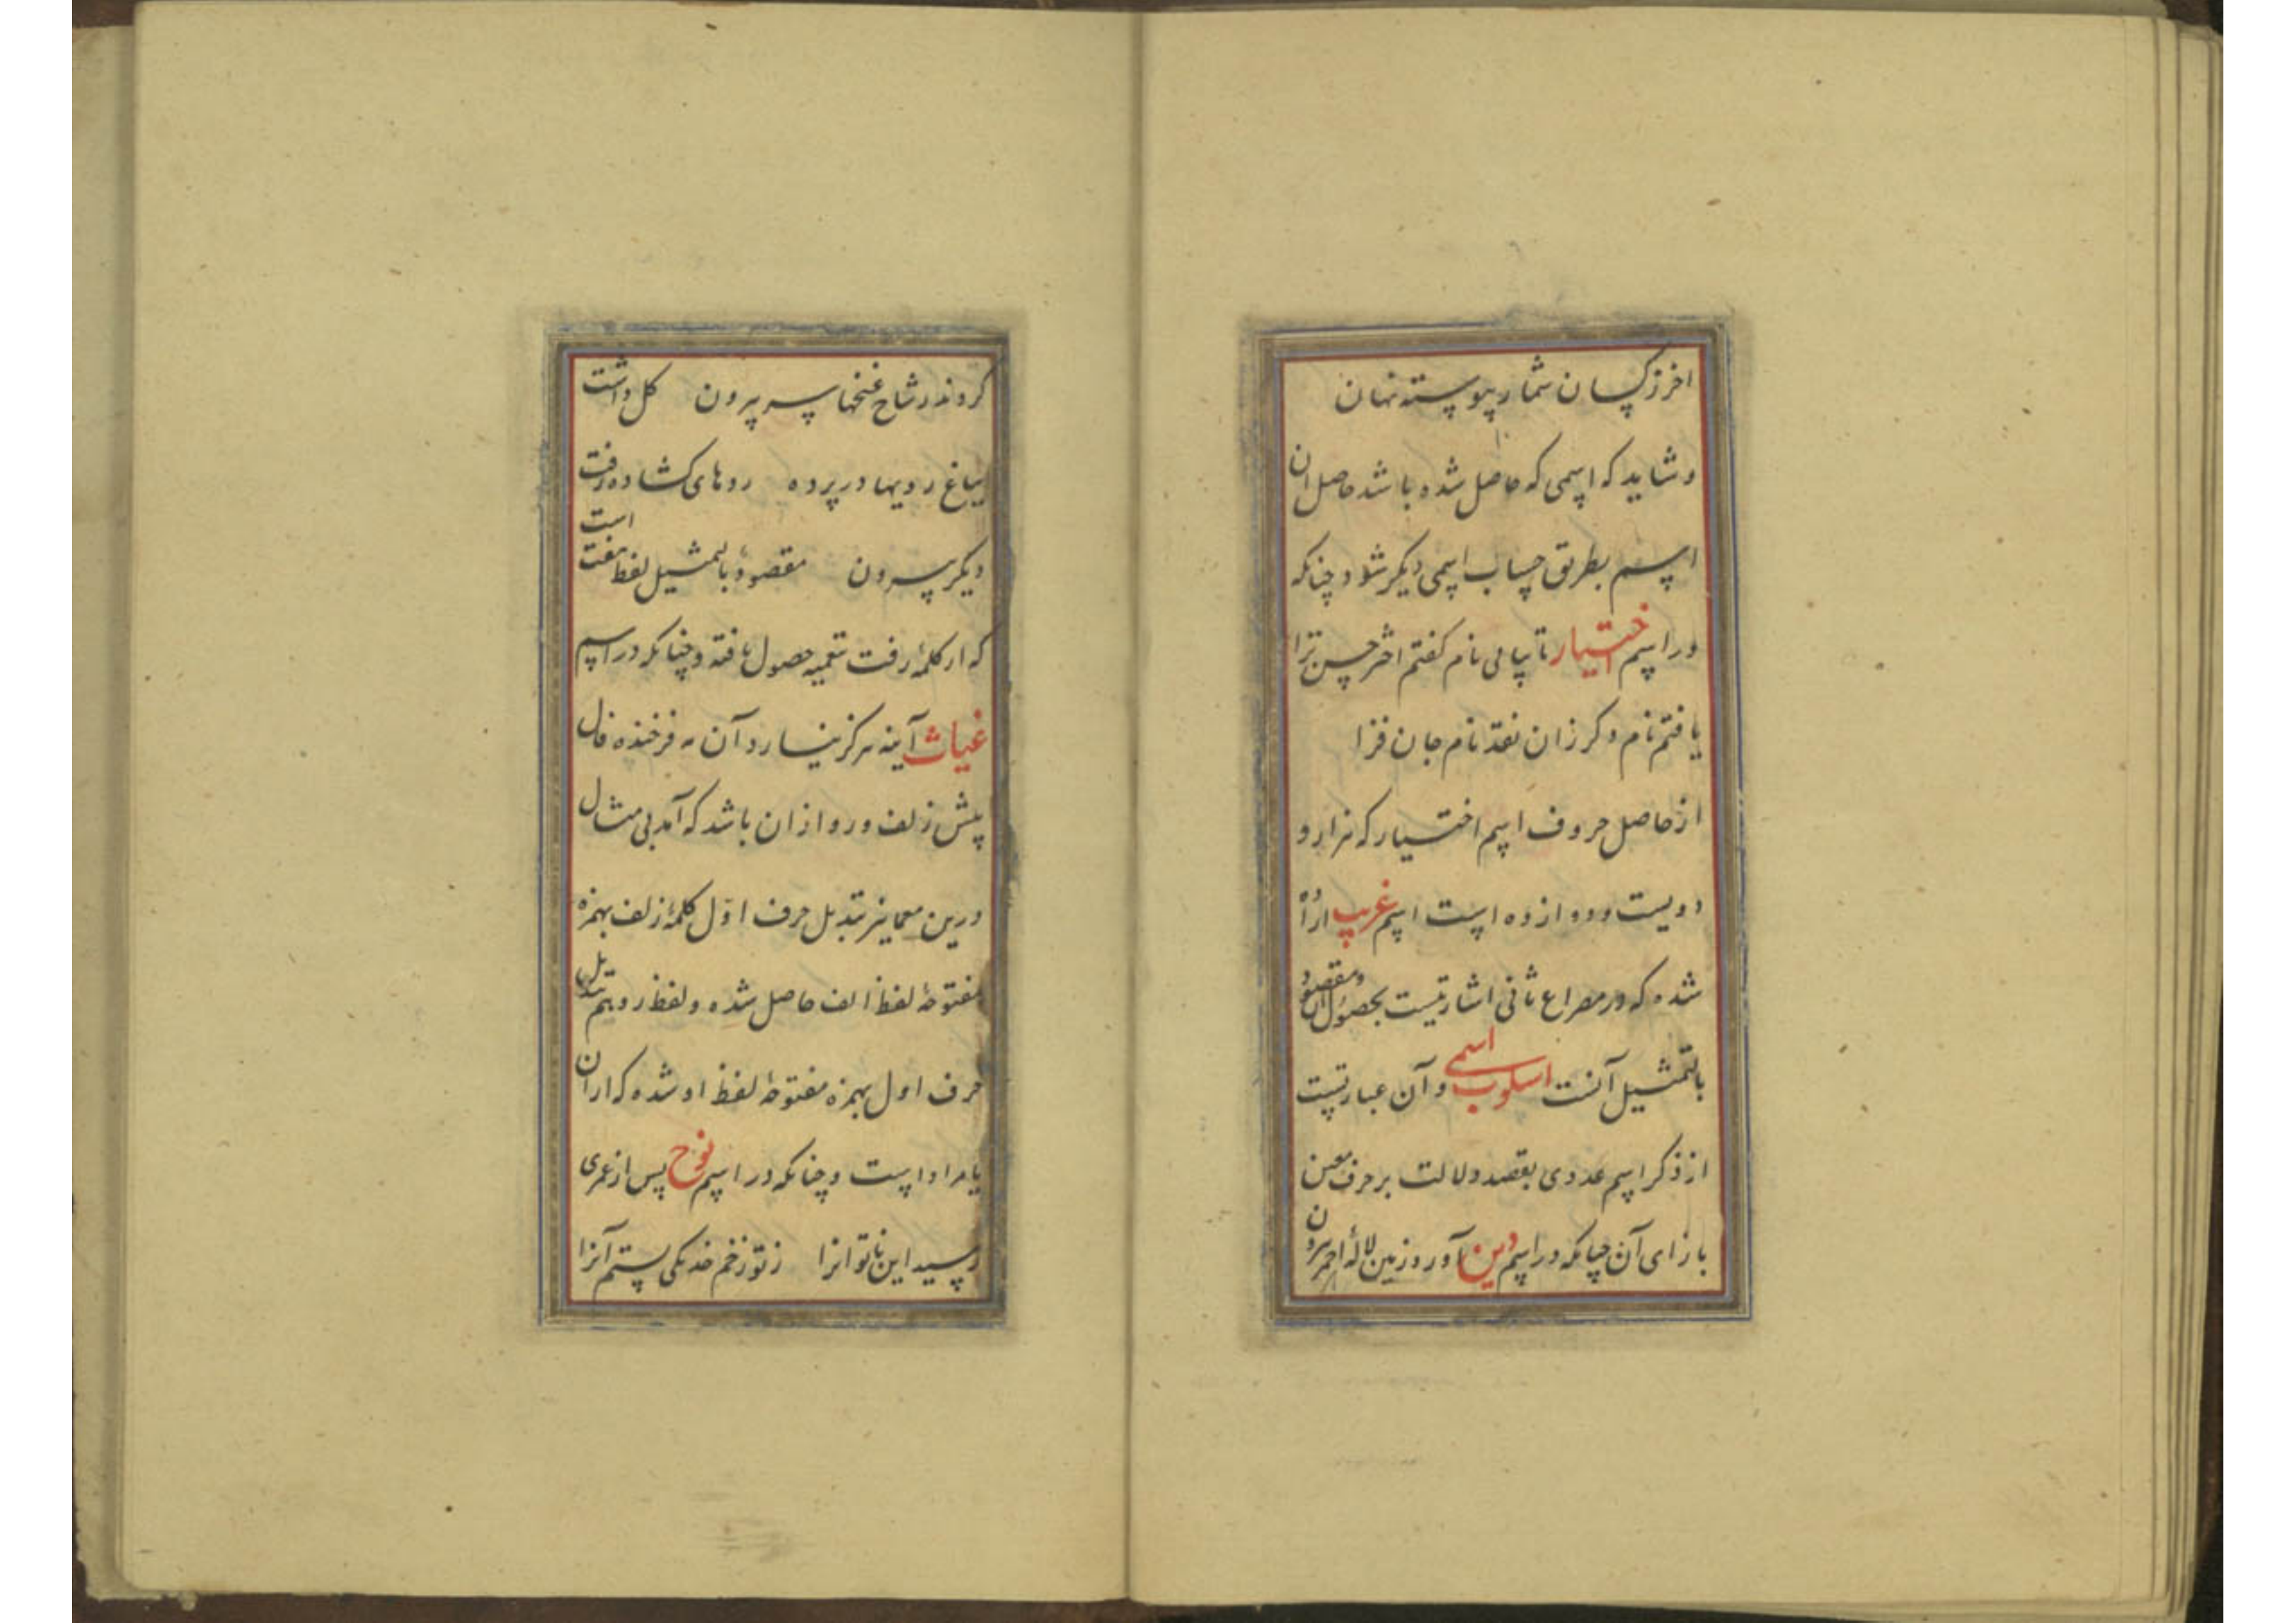 اخر ز کسان شمار پیوسته نهان
و شاید که اسمی که حاصل شده باشد حاصل ان
اسم بطریق حساب اسمی دیکر شود چنانکه
در اسم اختیار تا بیابی نام کفتم اختر حسن ترا
یافتم نام دکر زان نقد نام جان فزا
از حاصل حروف اسم اختیار که هزار و
دویست و دوازده است اسم غریب اراده
شده که در مصراع ثانی اشارتیست بحصول آن و مقصود
بالتمثیل آنست اسلوب اسمی و آن عبارتست
از ذکر اسم عددی بقصد دلالت بر حرف معین
بازای آن چنانکه در اسم دین آورد زمین لالهٔ احمر بیرون
کردند ز شاخ غنچها سر بیرون کل داشت
بباغ رویها در پرده روهای کشاده رفت
دیکر بیرون مقصود بالتمثیل لفظ هفت است
که از کلمهٔ رفت بتعمیه حصول یافته و چنانکه در اسم
غیاث آینه هرکز نیارد آن مه فرخنده فال
پیش زلف و رو ازان باشد که آمد بی مثال
درین معما نیز تبدیل حرف اوّل کلمهٔ زلف بهمزه
مفتوحه لفظ الف حاصل شده و لفظ رو بهم تبدیل
حرف اول بهمزه مفتوحه لفظ او شده که از ان
یا مراد است و چنانکه در اسم نوح پس از عمری
رسید این ناتوانرا ز تو زخم خدنکی ستم آنرا